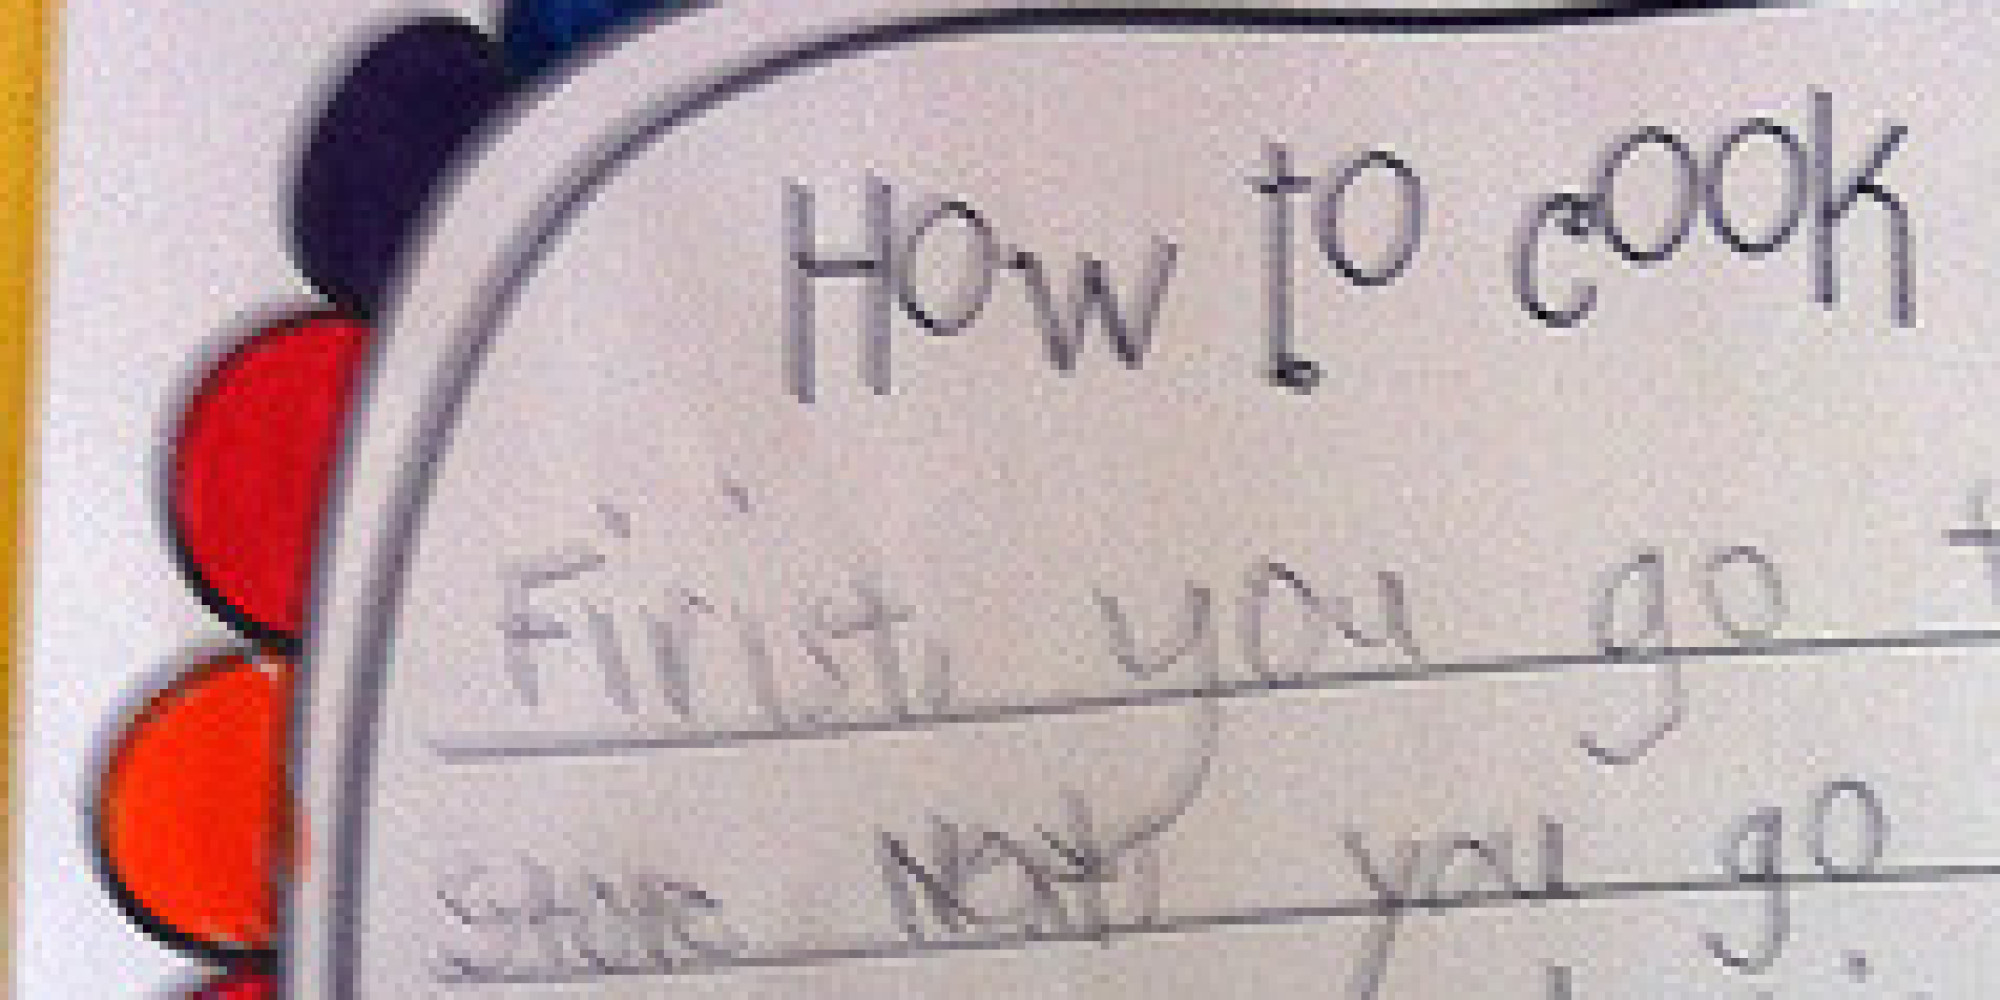 How to cook
First, you go t
Next, you go